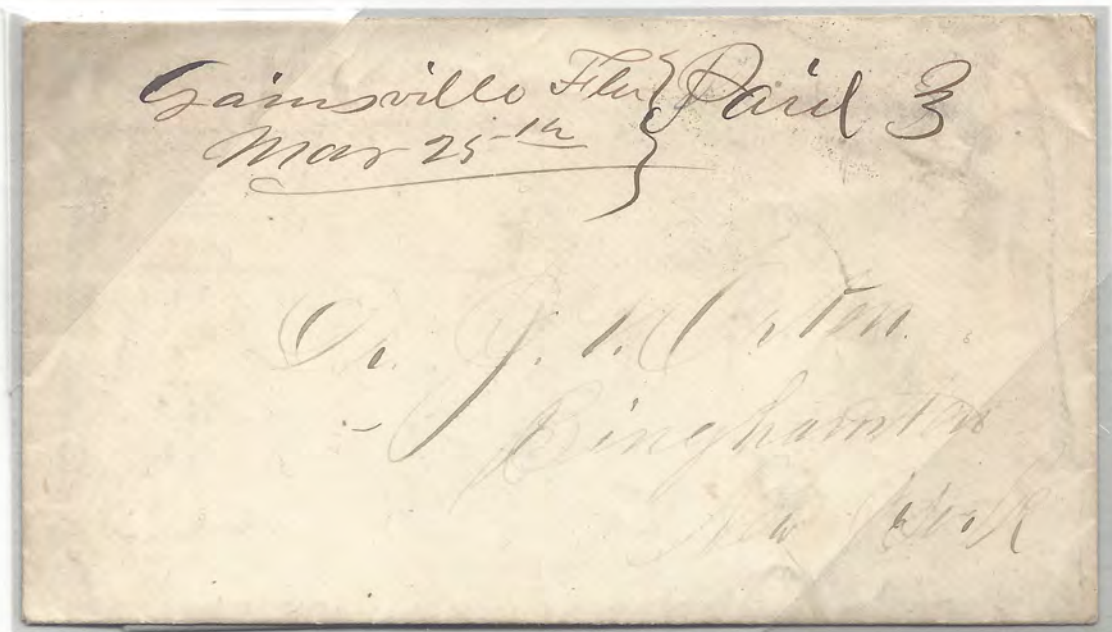 Gainsville Fla } Paid 3
Mar 25th
Dr. J. Orton.
Binghamton
New York